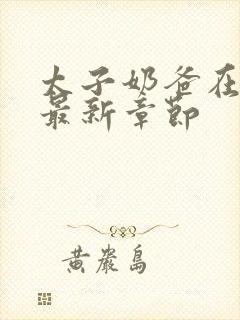 太子奶爸在
最新章節
黄岩島